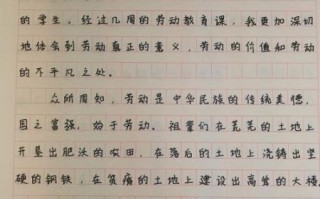 的学生，经过几周的劳动教育课，我更加深切
地体会到劳动真正的意义，劳动的价值和劳动
的不平凡之处。
众所周知，劳动是中华民族的传统美德，
国之富强，始于劳动。祖辈们在荒芜的土地上
开垦出肥沃的农田，在落后的土地上浇铸出坚
硬的钢铁，在贫瘠的土地上建设出高耸的大楼。